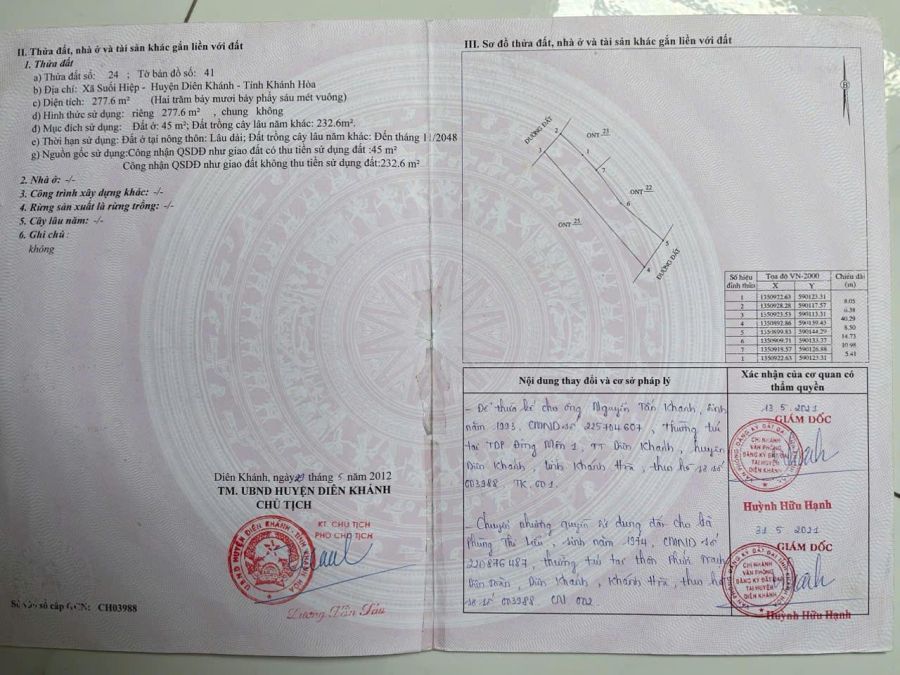 II. Thửa đất, nhà ở và tài sản khác gắn liền với đất
1. Thửa đất
a) Thửa đất số: 24 ; Tờ bản đồ số: 41
b) Địa chỉ: Xã Suối Hiệp - Huyện Diên Khánh - Tỉnh Khánh Hòa
c) Diện tích: 277.6 m² (Hai trăm bảy mươi bảy phẩy sáu mét vuông)
d) Hình thức sử dụng: riêng 277.6 m² , chung không
đ) Mục đích sử dụng: Đất ở: 45 m²; Đất trồng cây lâu năm khác: 232.6m².
e) Thời hạn sử dụng: Đất ở tại nông thôn: Lâu dài; Đất trồng cây lâu năm khác: Đến tháng 11/2048
g) Nguồn gốc sử dụng:Công nhận QSDĐ như giao đất có thu tiền sử dụng đất :45 m²
Công nhận QSDĐ như giao đất không thu tiền sử dụng đất:232.6 m²
2. Nhà ở: -/-
3. Công trình xây dựng khác: -/-
4. Rừng sản xuất là rừng trồng: -/-
5. Cây lâu năm: -/-
6. Ghi chú :
không
Diên Khánh, ngày 29 tháng 5 năm 2012
TM. UBND HUYỆN DIÊN KHÁNH
CHỦ TỊCH
KT CHỦ TỊCH
PHÓ CHỦ TỊCH
UBND HUYỆN DIÊN KHÁNH - TỈNH KHÁNH HÒA
Số vào sổ cấp GCN: CH03988
III. Sơ đồ thửa đất, nhà ở và tài sản khác gắn liền với đất
B
ĐƯỜNG ĐẤT
2
ONT 23
3
1
7
ONT 22
6
ONT 25
5
4
ĐƯỜNG ĐẤT
Số hiệu đỉnh thửa
Tọa độ VN-2000
Chiều dài (m)
X Y
1 1350922.63 590123.31
8.05
2 1350928.28 590117.57
6.38
3 1350923.53 590113.31
40.29
4 1350892.86 590139.43
8.50
5 1350899.83 590144.29
14.73
6 1350909.71 590133.37
10.98
7 1350918.57 590126.88
5.41
1 1350922.63 590123.31
Nội dung thay đổi và cơ sở pháp lý
Xác nhận của cơ quan có thẩm quyền
- Để thừa kế cho ông Nguyễn Tấn Khanh, sinh
năm 1993, CMND số 225704607, thường trú
tại TDP Đông Môn 1, TT Diên Khánh, huyện
Diên Khánh, tỉnh Khánh Hòa, theo hồ sơ số
003988. TK.001.
13 5 2021
GIÁM ĐỐC
CHI NHÁNH
VĂN PHÒNG
ĐĂNG KÝ ĐẤT ĐAI
TẠI HUYỆN
DIÊN KHÁNH
Huỳnh Hữu Hạnh
- Chuyển nhượng quyền sử dụng đất cho bà
Phùng Thị, sinh năm 1974, CMND số
220876487, thường trú tại thôn Phước
Diên, Diên Khánh, Khánh Hòa, theo hồ
sơ số 003988 CN 002.
31 5 2021
GIÁM ĐỐC
CHI NHÁNH
VĂN PHÒNG
ĐĂNG KÝ ĐẤT ĐAI
TẠI HUYỆN
DIÊN KHÁNH
Huỳnh Hữu Hạnh